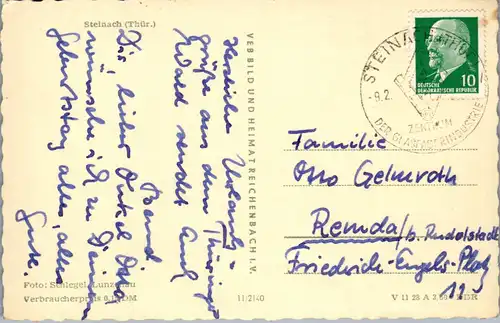 Steinach (Thür.)
Herzliche Urlaubs-
grüße aus dem Thüringer
Wald sendet Euch
Bernd
Dir, lieber Onkel Otto,
wünsche ich zu Deinem
Geburtstag alles, alles
Gute.
Foto: Schlegel, Lunzenau
Verbraucherpreis 0,1 DM
VEB BILD UND HEIMAT REICHENBACH I. V.
11/2140
STEINACH (THÜR
-9.2.
ZENTRUM
DER GLASFASERINDUSTRIE
10
DEUTSCHE
DEMOKRATISCHE REPUBLIK
Familie
Otto Gelmroth
Remda/b. Rudolstadt
Friedrich-Engels-Platz
12
V 11 28 A 2/60 DDR